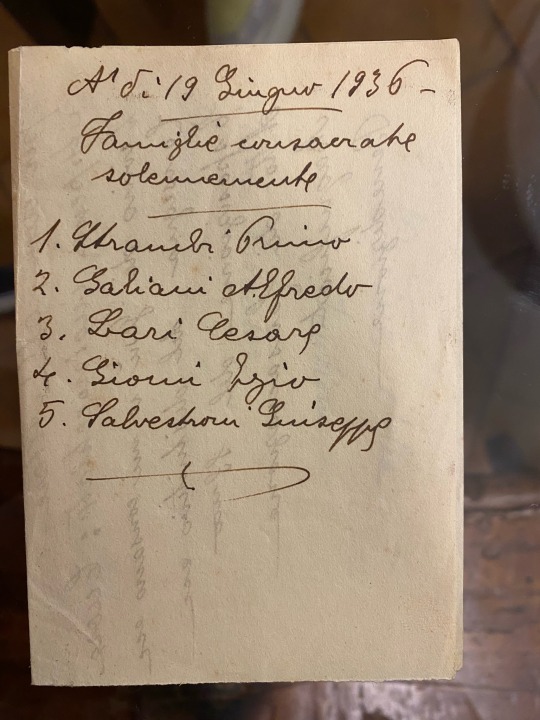 A' dì 19 Giugno 1936 -
Famiglie consacrate
solennemente
1. Strambi Primo
2. Galiani Alfredo
3. Lari Cesare
4. Gionni Ezio
5. Salvestroni Giuseppe